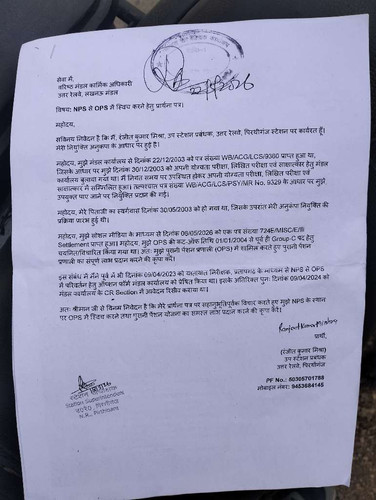 सेवा में,
वरिष्ठ मंडल कार्मिक अधिकारी
उत्तर रेलवे, लखनऊ मंडल
विषय: NPS से OPS में स्विच करने हेतु प्रार्थना पत्र।
महोदय,
सविनय निवेदन है कि मैं, रंजीत कुमार मिश्रा, उप स्टेशन प्रबंधक, उत्तर रेलवे, पिरथीगंज स्टेशन पर कार्यरत हूँ।
मेरी नियुक्ति अनुकंपा के आधार पर हुई है।
महोदय, मुझे मंडल कार्यालय से दिनांक 22/12/2003 को पत्र संख्या WB/ACG/LCS/9360 प्राप्त हुआ था,
जिसके आधार पर मुझे दिनांक 30/12/2003 को अपनी योग्यता परीक्षा, लिखित परीक्षा एवं साक्षात्कार हेतु मंडल
कार्यालय बुलाया गया था। मैं नियत समय पर उपस्थित होकर अपनी योग्यता परीक्षा, लिखित परीक्षा एवं
साक्षात्कार में सम्मिलित हुआ। तत्पश्चात पत्र संख्या WB/ACG/LCS/PSY/MR No. 9329 के आधार पर मुझे
उपयुक्त पाए जाने पर नियुक्ति प्रदान की गई।
महोदय, मेरे पिताजी का स्वर्गवास दिनांक 30/05/2003 को हो गया था, जिसके उपरांत मेरी अनुकंपा नियुक्ति की
प्रक्रिया प्रारंभ हुई थी।
महोदय, मुझे सोशल मीडिया के माध्यम से दिनांक 06/05/2026 को एक पत्र संख्या 724E/MISC/E/6
Settlement प्राप्त हुआ। महोदय, मुझे OPS की कट-ऑफ तिथि 01/01/2004 से पूर्व ही Group-C पद हेतु
चयनित/विचारित किया गया था। अतः मुझे पुरानी पेंशन प्रणाली (OPS) में शामिल करते हुए पुरानी पेंशन
प्रणाली का संपूर्ण लाभ प्रदान करने की कृपा करें।
इस संबंध में मैंने पूर्व में भी दिनांक 09/04/2023 को यातायात निरीक्षक, प्रतापगढ़ के माध्यम से NPS से OPS
में परिवर्तन हेतु ऑप्शन फॉर्म मंडल कार्यालय को प्रेषित किया था। इसके अतिरिक्त पुनः दिनांक 09/04/2024 को
मंडल कार्यालय के CR Section में आवेदन रिसीव कराया था।
अतः श्रीमान जी से विनम्र निवेदन है कि मेरे प्रार्थना पत्र पर सहानुभूतिपूर्वक विचार करते हुए मुझे NPS के स्थान
पर OPS में स्विच करने तथा पुरानी पेंशन योजना का समस्त लाभ प्रदान करने की कृपा करें।
Ranjeet Kumar Mishra
प्रार्थी,
(रंजीत कुमार मिश्रा)
उप स्टेशन प्रबंधक
उत्तर रेलवे, पिरथीगंज
PF No.: 50305701788
मोबाइल नंबर: 9453684145
Station Superintendent
N.R., Pirthiganj